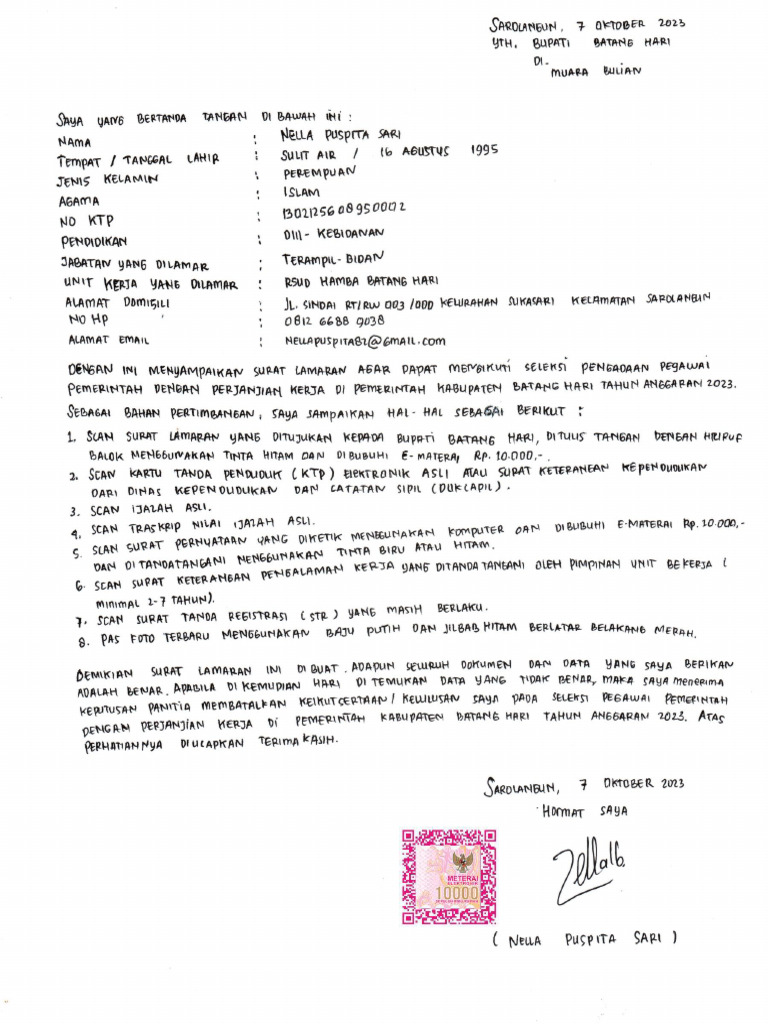 SAROLANGUN, 7 OKTOBER 2023
YTH. BUPATI BATANG HARI
DI.
MUARA BULIAN
SAYA YANG BERTANDA TANGAN DI BAWAH INI :
NAMA : NELLA PUSPITA SARI
TEMPAT / TANGGAL LAHIR : SULIT AIR / 16 AGUSTUS 1995
JENIS KELAMIN : PEREMPUAN
AGAMA : ISLAM
NO KTP : 1302125608950002
PENDIDIKAN : DIII - KEBIDANAN
JABATAN YANG DILAMAR : TERAMPIL - BIDAN
UNIT KERJA YANG DILAMAR : RSUD HAMBA BATANG HARI
ALAMAT DOMISILI : JL. SINDAI RT/RW 003 /000 KELURAHAN SUKASARI KECAMATAN SAROLANGUN
NO HP : 0812 6688 9038
ALAMAT EMAIL : NELLAPUSPITA82@GMAIL.COM
DENGAN INI MENYAMPAIKAN SURAT LAMARAN AGAR DAPAT MENGIKUTI SELEKSI PENGADAAN PEGAWAI
PEMERINTAH DENGAN PERJANJIAN KERJA DI PEMERINTAH KABUPATEN BATANG HARI TAHUN ANGGARAN 2023.
SEBAGAI BAHAN PERTIMBANGAN, SAYA SAMPAIKAN HAL - HAL SEBAGAI BERIKUT :
1. SCAN SURAT LAMARAN YANG DITUJUKAN KEPADA BUPATI BATANG HARI, DITULIS TANGAN DENGAN HURUF
BALOK MENGGUNAKAN TINTA HITAM DAN DIBUBUHI E-MATERAI RP. 10.000,-.
2. SCAN KARTU TANDA PENDUDUK (KTP) ELEKTRONIK ASLI ATAU SURAT KETERANGAN KEPENDUDUKAN
DARI DINAS KEPENDUDUKAN DAN CATATAN SIPIL (DUKCAPIL).
3. SCAN IJAZAH ASLI.
4. SCAN TRASKRIP NILAI IJAZAH ASLI.
5. SCAN SURAT PERNYATAAN YANG DIKETIK MENGGUNAKAN KOMPUTER DAN DIBUBUHI E-MATERAI RP. 10.000,-
DAN DITANDATANGANI MENGGUNAKAN TINTA BIRU ATAU HITAM.
6. SCAN SURAT KETERANGAN PENGALAMAN KERJA YANG DITANDATANGANI OLEH PIMPINAN UNIT BEKERJA (
MINIMAL 2-7 TAHUN).
7. SCAN SURAT TANDA REGISTRASI (STR) YANG MASIH BERLAKU.
8. PAS FOTO TERBARU MENGGUNAKAN BAJU PUTIH DAN JILBAB HITAM BERLATAR BELAKANG MERAH.
DEMIKIAN SURAT LAMARAN INI DI BUAT. ADAPUN SELURUH DOKUMEN DAN DATA YANG SAYA BERIKAN
ADALAH BENAR. APABILA DI KEMUDIAN HARI DI TEMUKAN DATA YANG TIDAK BENAR, MAKA SAYA MENERIMA
KEPUTUSAN PANITIA MEMBATALKAN KEIKUTSERTAAN / KELULUSAN SAYA PADA SELEKSI PEGAWAI PEMERINTAH
DENGAN PERJANJIAN KERJA DI PEMERINTAH KABUPATEN BATANG HARI TAHUN ANGGARAN 2023. ATAS
PERHATIANNYA DIUCAPKAN TERIMA KASIH.
SAROLANGUN, 7 OKTOBER 2023
HORMAT SAYA
METERAI
ELEKTRONIK
10000
( NELLA PUSPITA SARI )